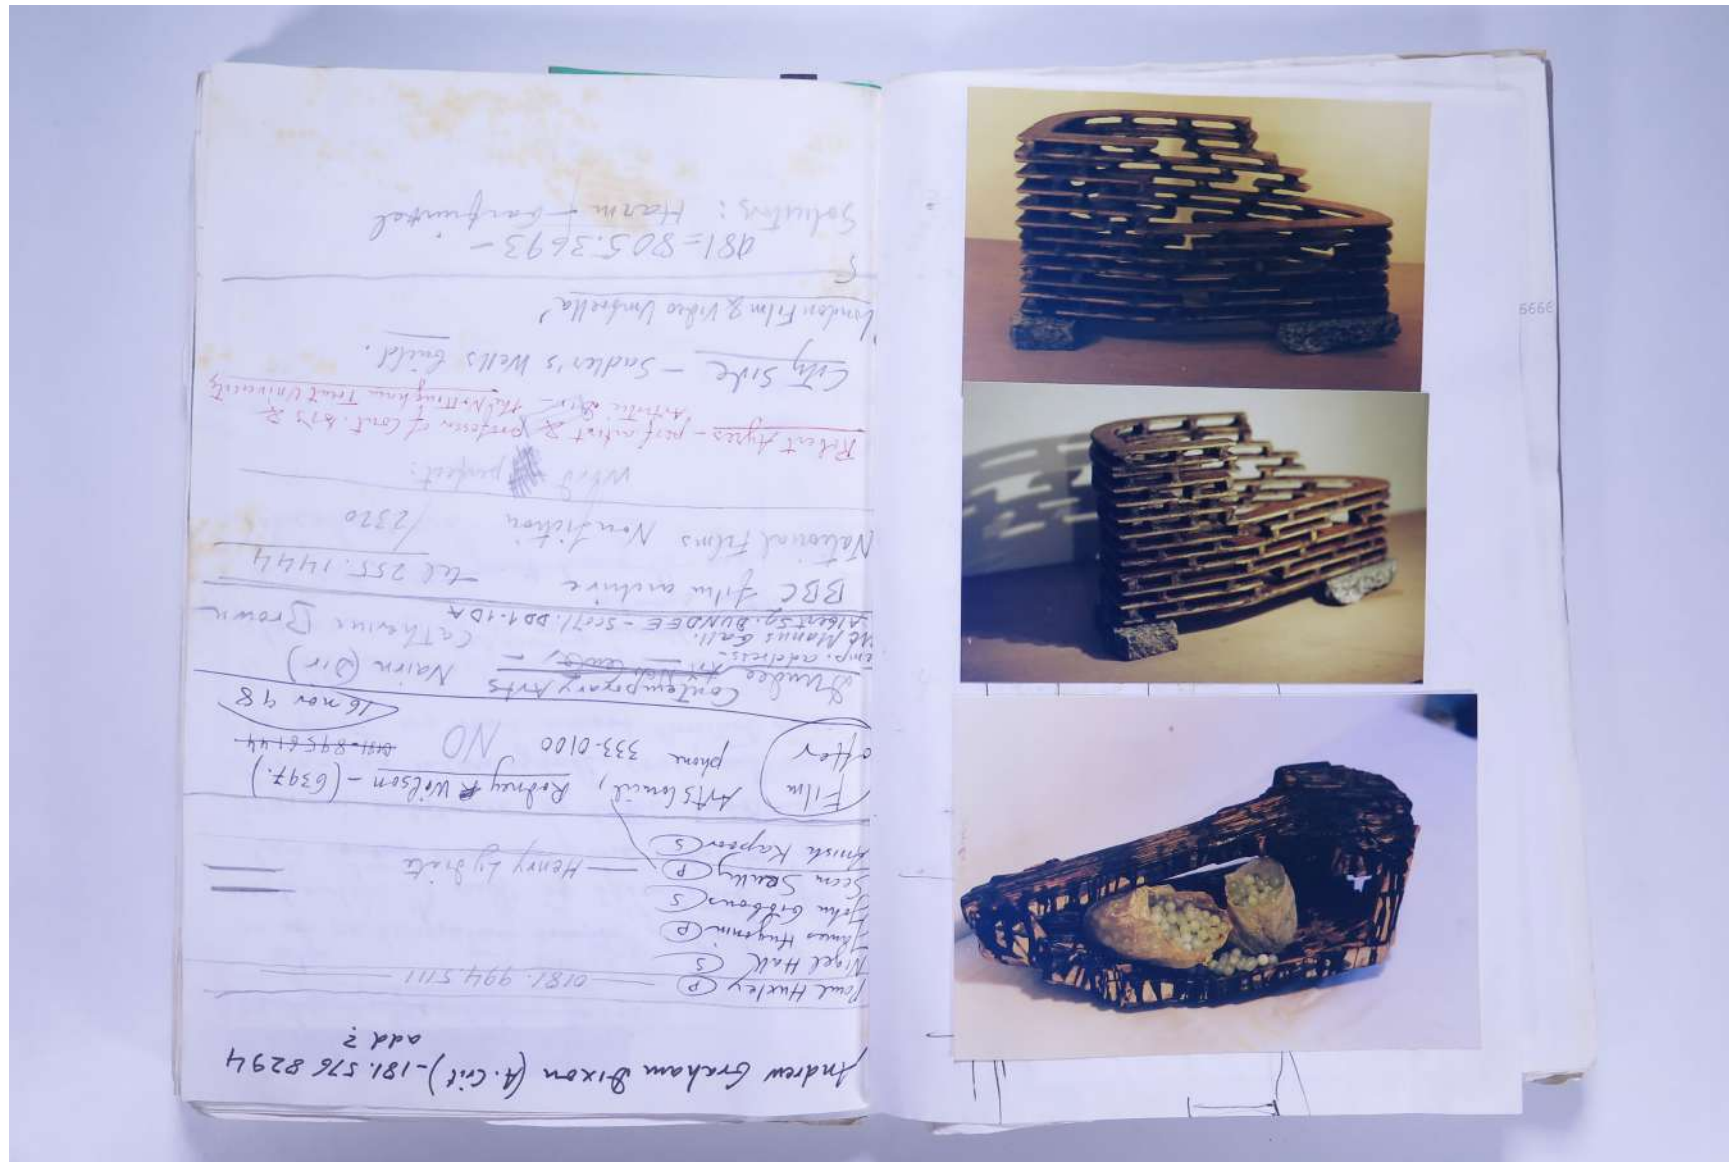 Andrew Graham Dixon (A. Crit) - 181.576 8294
add?
Paul Huxley (P) 0181.994 5111
Nigel Hall (S)
James Hugonin (P)
John Gibbons (S)
Sean Scully (P) — Henry Lydiate
Anish Kapoor (S)
Film offer
Arts Council, Rodney R Wilson - (6397.)
phone 333-0100 NO 0181-8956144
16 nov 98
Dundee Contemporary Arts Nairn (Dir)
temp. address -
Mc Manus Gall. Catherine Brown
Albert Sq. DUNDEE - Scotl. DD1-1DA
BBC film archive tel 255.1444
National Films Nonfiction /2320
Robert Ayres - perf artist & professor of Cont. Arts &
Artistic Dir - the Nottingham Trent University
City Side - Sadler's Wells build.
'London Film & Video Umbrella'
081=805.3693 -
Solicitors: Hazm
6666